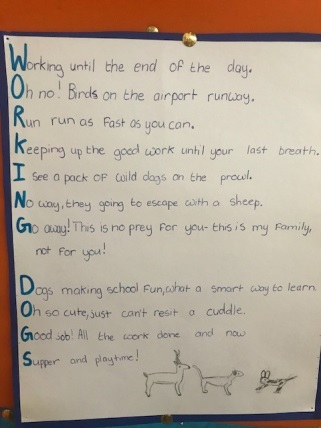 Working until the end of the day.
Oh no! Birds on the airport runway.
Run run as fast as you can.
Keeping up the good work until your last breath.
I see a pack of wild dogs on the prowl.
No way, they going to escape with a sheep.
Go away! This is no prey for you- this is my family,
not for you!
Dogs making school fun, what a smart way to learn.
Oh so cute, just can't resit a cuddle.
Good job! All the work done and now
Supper and playtime!